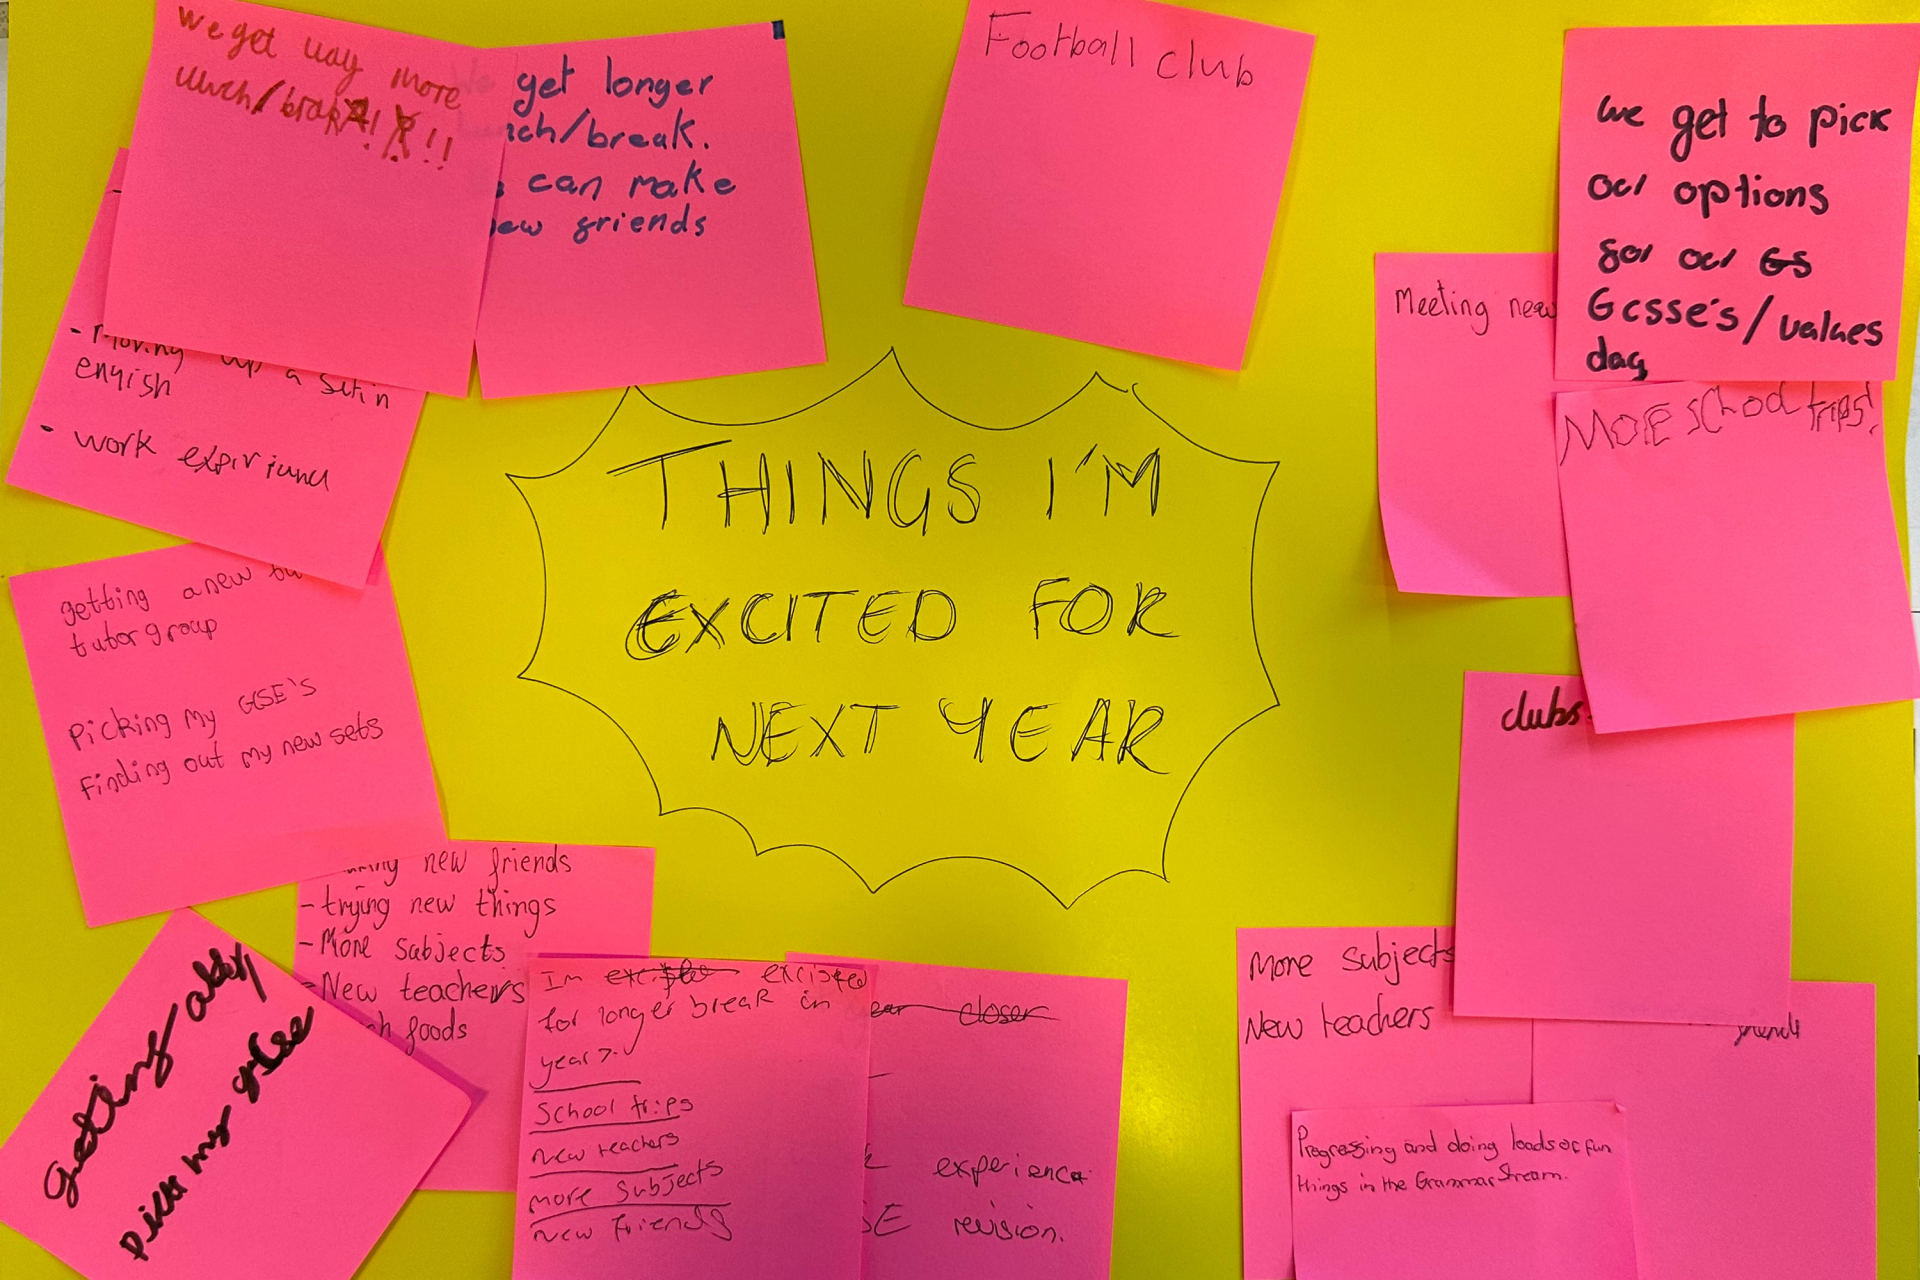 We get way more
lunch/brak!!!
get longer
nch/break.
can make
ew friends
Football club
we get to pick
our options
for our GS
Gcsse's/values
day
Meeting new
MORE school trips!
- Moving up a set in
english
- work expirience
getting a new
tutor group
picking my GCSE's
Finding out my new sets
THINGS I'M
EXCITED FOR
NEXT YEAR
clubs
new friends
- trying new things
- More subjects
- New teachers
foods
Getting older
pick my gcse
Im excisted
for longer break in
year 7.
School trips
new teachers
more subjects
new friends
ear closer
experience
SE revision.
More subjects
New teachers
Progressing and doing loads of fun
things in the Grammar Stream.